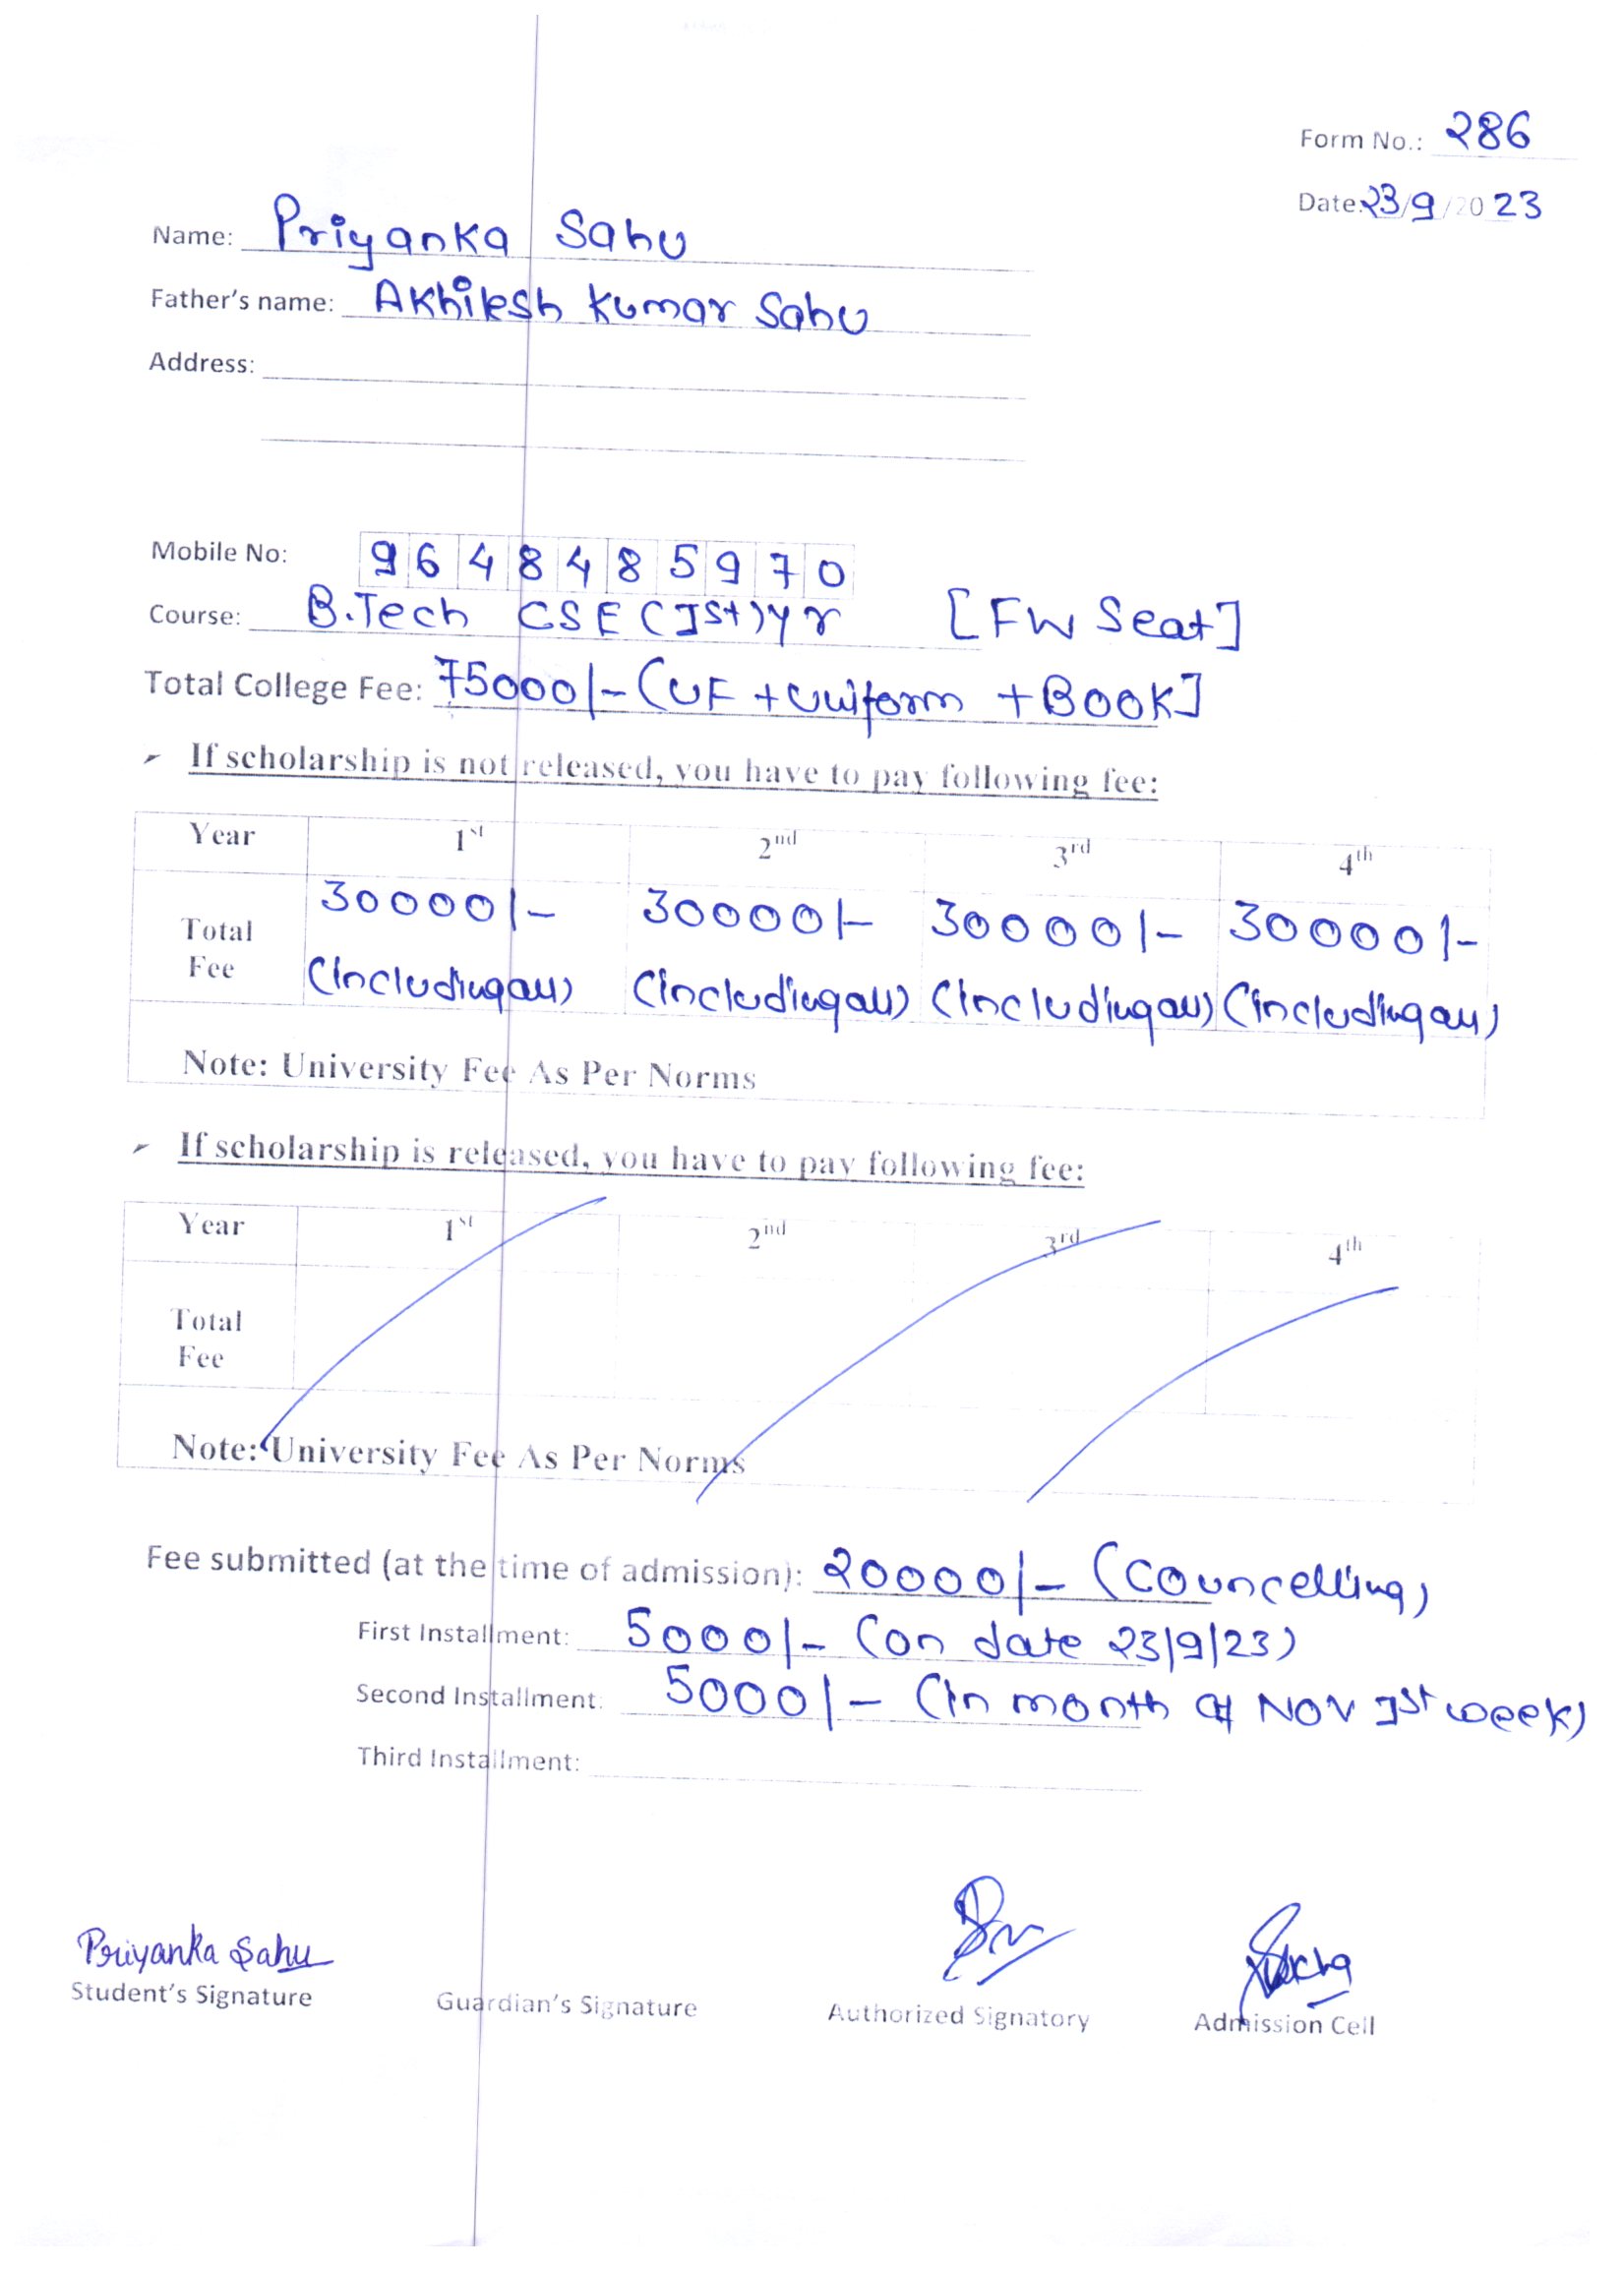 Form No.: 286
Date: 23/9/2023
Name: Priyanka Sahu
Father's name: Akhilesh Kumar Sahu
Address:
Mobile No: 9648485970
Course: B.Tech CSE (Ist) yr [FW Seat]
Total College Fee: 75000/- (UF + Uniform + Book]
If scholarship is not released, you have to pay following fee:
Year 1st 2nd 3rd 4th
Total Fee 30000/- 30000/- 30000/- 30000/-
(Including all) (Including all) (Including all) (Including all)
Note: University Fee As Per Norms
If scholarship is released, you have to pay following fee:
Year 1st 2nd 3rd 4th
Total Fee
Note: University Fee As Per Norms
Fee submitted (at the time of admission): 20000/- (Councelling)
First Installment: 5000/- (on date 23/9/23)
Second Installment: 5000/- (In month of NOV Ist week)
Third Installment:
Priyanka Sahu
Student's Signature Guardian's Signature Authorized Signatory Admission Cell